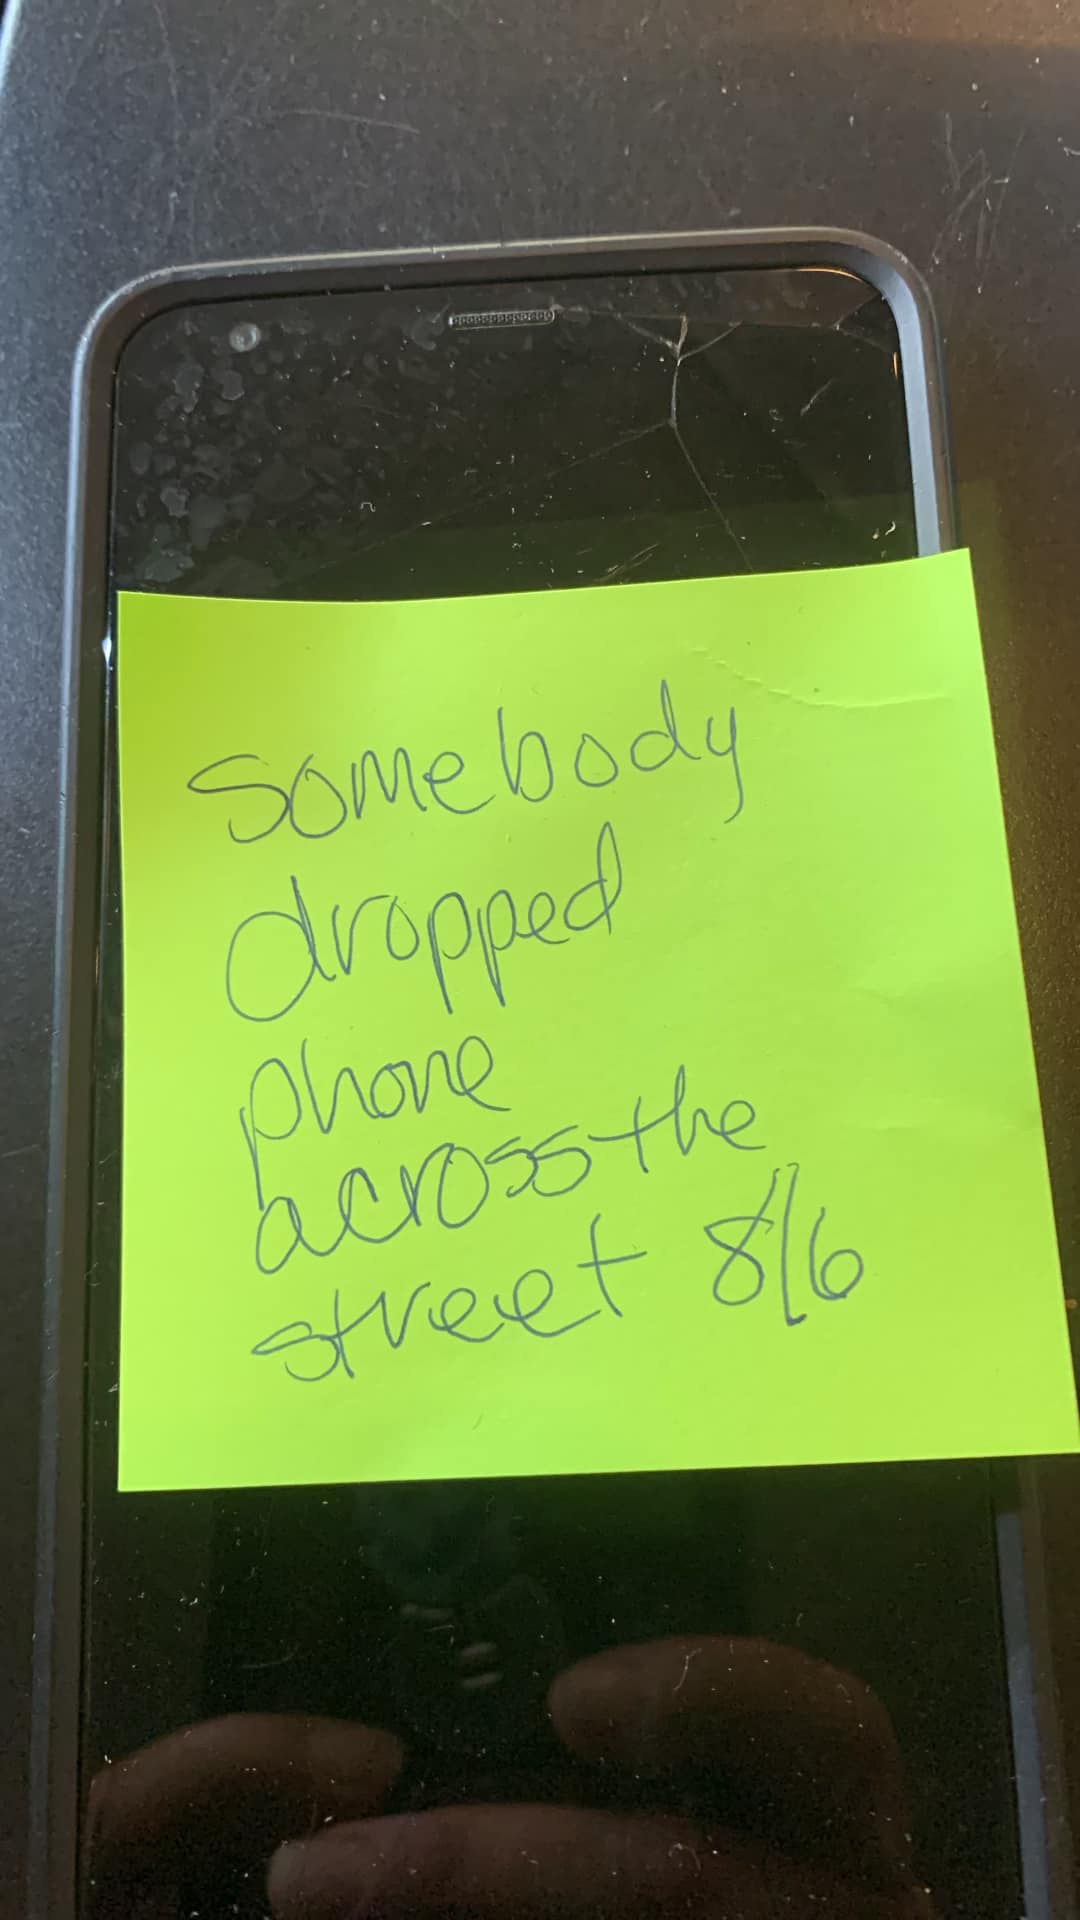 somebody
dropped
phone
across the
street 8/6